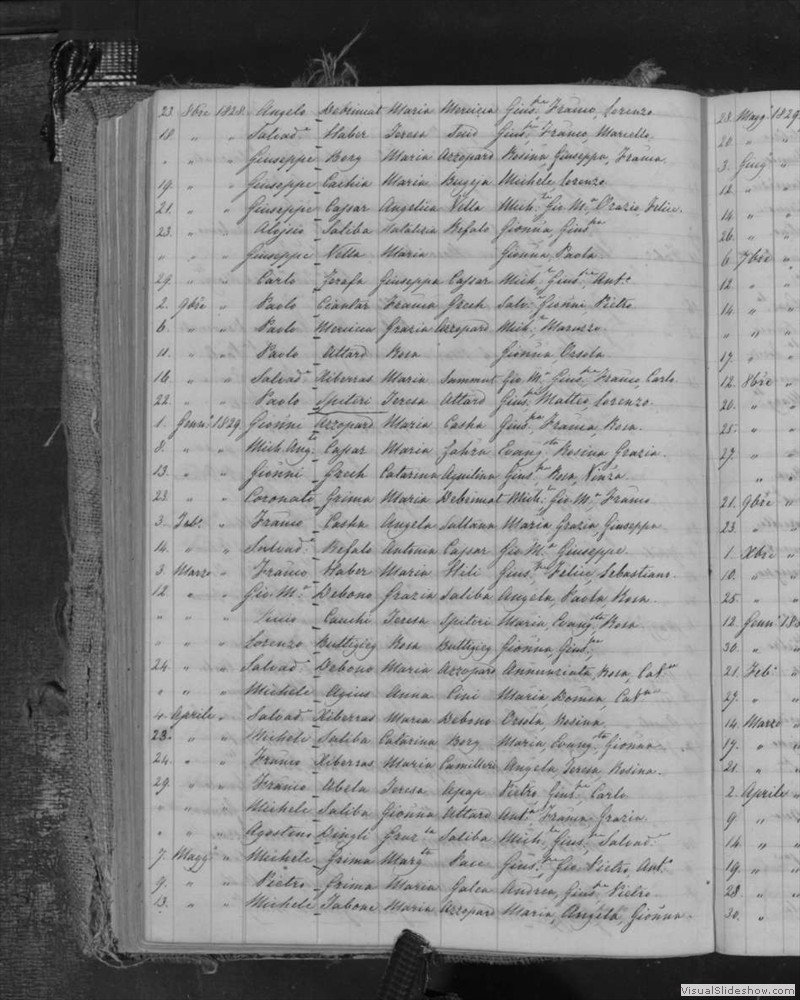 23. 8bre 1828 Angelo Debrincat Maria Mercieca Gius.pa Franco, Lorenzo
18. " " Salvad.e Haber Teresa Saud Gius.e, Franco, Marcello,
" " " Giuseppe Borg Maria Azzopard Rosina, Giuseppa, Franca.
19. " " Giuseppe Cachia Maria Bugeja Michele, Lorenzo
21. " " Giuseppe Cassar Angelica Vella Mich.le Gio M.a Orazio, Felice.
23. " " Aloysio Saliba Natalizia Refalo Gionna, Gius.pa
" " " Giuseppe Vella Maria Gionna, Paola.
29. " " Carlo Zerafa Giuseppa Cassar Mich.e Gius.pa Ant.o
2. 9bre " Paolo Ciantar Franca Grech Salv.e Gionni, Pietro
6. " " Paolo Mercieca Grazia Azzopard Mich.e, Maruzzo.
11. " " Paolo Attard Rosa Gionna Orsola.
16. " " Salvad.e Xiberras Maria Sammut Gio M.a Gius.pa Franco, Carlo
22. " " Paolo Spiteri Teresa Attard Gius.pa Matteo, Lorenzo.
1. Genn.o 1829 Gionni Azzopard Maria Casha Gius.pa Franca, Rosa.
8. " " Mich.Ang. Cassar Maria Zahra Evang.sta Rosina, Grazia.
13. " " Gionni Grech Catarina Aquilina Gius.pe Rosa,
23. " " Coronato Grima Maria Debrincat Mich.e Gio M.a, Franco
3. Feb.o " Franco Casha Angela Sultana Maria Grazia Giuseppa
14. " " Salvad.e Refalo Antonia Cassar Gio M.a Giuseppe.
3. Marzo " Franco Haber Maria Xili Gius.pa Felice, Sebastiano.
12. " " Gio. M.a Debono Grazia Saliba Angela, Paola Rosa.
" " " Cauchi Teresa Spiteri Maria, Evang.sta Rosa
" " " Lorenzo Buttigieg Rosa Buttigieg Gionna Gius.pa
24. " " Salvad.e Debono Maria Azzopard Annunziata, Rosa, Cat.na
" " " Michele Agius Anna Cini Maria, Domen.a, Cat.na
4. Aprile " Salvad.e Xiberras Maria Debono Orsola, Rosina,
23. " " Michele Saliba Catarina Borg Maria, Evang.sta, Gionna
24. " " Franco Xiberras Maria Camilleri Angela Teresa, Rosina.
29. " " Franco Abela Teresa Apap Pietro Gius.pe, Carlo
" " " Michele Saliba Gionna Attard Ant.a Franca, Grazia
" " " Agostono Dingli Graz.la Saliba Mich.le Gius.pe Salvad.e
7. Magg.o " Michele Grima Marg.ta Pace Gius.pe Gio Pietro, Ant.o
9. " " Pietro Grima Maria Galea Andrea, Gius.pe Pietro
13. " " Michele Tabone Maria Azzopard Maria, Angela, Gionna.
28. Magg.o 1829.
20. "
3. Giug.o "
12. " "
14. " "
26. " "
6. 7bre "
12. " "
14. " "
" " "
17. " "
12. 8bre "
20. " "
25. " "
27. " "
" "
21. 9bre "
23. "
1. Xbre "
10. " "
25. "
12. Genn.o 183
30. "
21. Feb.o "
27. " "
14. Marzo "
17. " "
21. "
2. Aprile "
9. "
14. " "
19. " "
28. "
30. "
VisualSlideshow.com